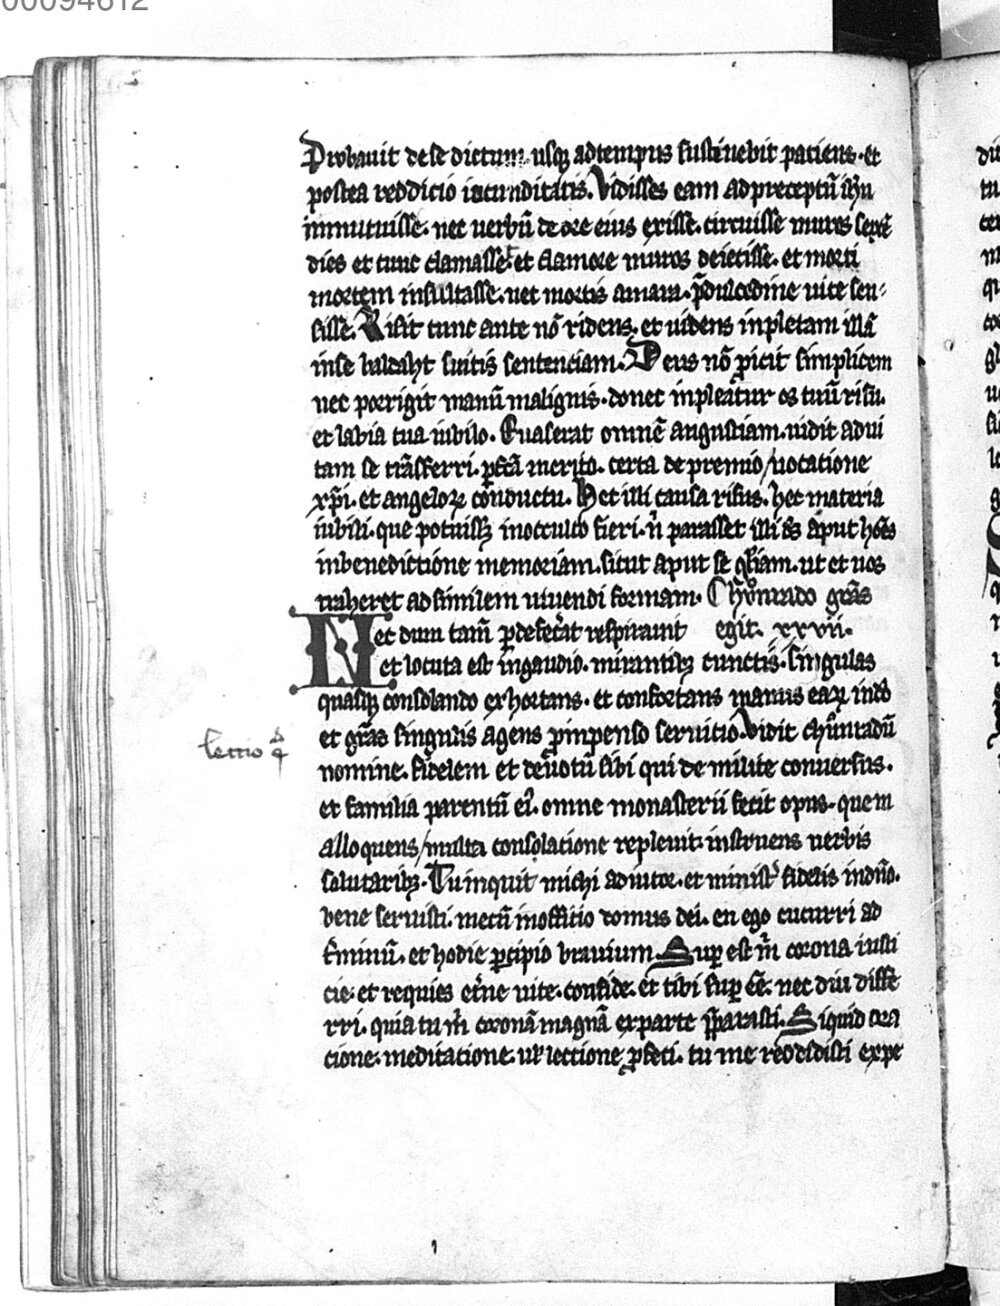 00094612
Probauit de se dictum usq; ad tempus sustinebit patiens. et
postea reddicio iocunditatis. Vidisses eam ad preceptū ihu
inmutuisse. nec uerbū de ore eius exisse. circuisse muros septē
dies et tunc clamasse. et clamore muros deiecisse. et morti
mortem insultasse. nec mortis amara. p̄dulcedine uite sen-
sisse. Risit tunc ante nō ridens. et uidens inpletam illā
in se baldaht suitis sentenciam. Deus nō ꝓicit simplicem
nec porrigit manū malignis. donec inpleatur os tuū risu.
et labia tua iubilo. Euaserat omnē angustiam. uidit ad ui
tam se trāsferri. ꝑfcā merito. certa de premio / uocatione
xp̄i. et angeloꝝ conductu. Hec illi causa risus. hec materia
iubili. que potuissꝫ in occulto fieri. ñ parasset illi d̄s aput hōes
in benedictione memoriam. sicut aput se gl̄iam. ut et uos
traheret ad similem uiuendi formam. Chv̊nrado grās
Nec dum tam̄ ꝑ defecerat respirauit egit. xxvii.
et locuta est in gaudio. mirantibꝫ cunctis. singulas
quasqꝫ consolando exhortans. et confortans manus eaꝝ in dō
et grās singulis agens ꝓ inpenso seruitio. Vidit chv̊nradū
lectio 4ᵃ
nomine. fidelem et deuotū sibi qui de milite conuersus.
et familia parentū ei᷒. omne monasterii fecit opus. quem
alloquens / multa consolatione repleuit. instruens uerbis
salutaribꝫ. Tu inquit michi adiutor. et minister fidelis in dn̄o.
bene seruisti. mecū in offitio domus dei. en ego cucurri ad
t̄minū. et hodie ꝑcipio brauium. Suꝑ est m̄ corona iusti
cie. et requies et̄ne uite. confide. et tibi suꝑ ēē. nec diu diffe
rri. quia tu m̄ coronā magnā ex parte p̄parasti. Siquid ora
cione. meditatione. ul̄ lectione ꝓfeci. tu me reddidisti expe